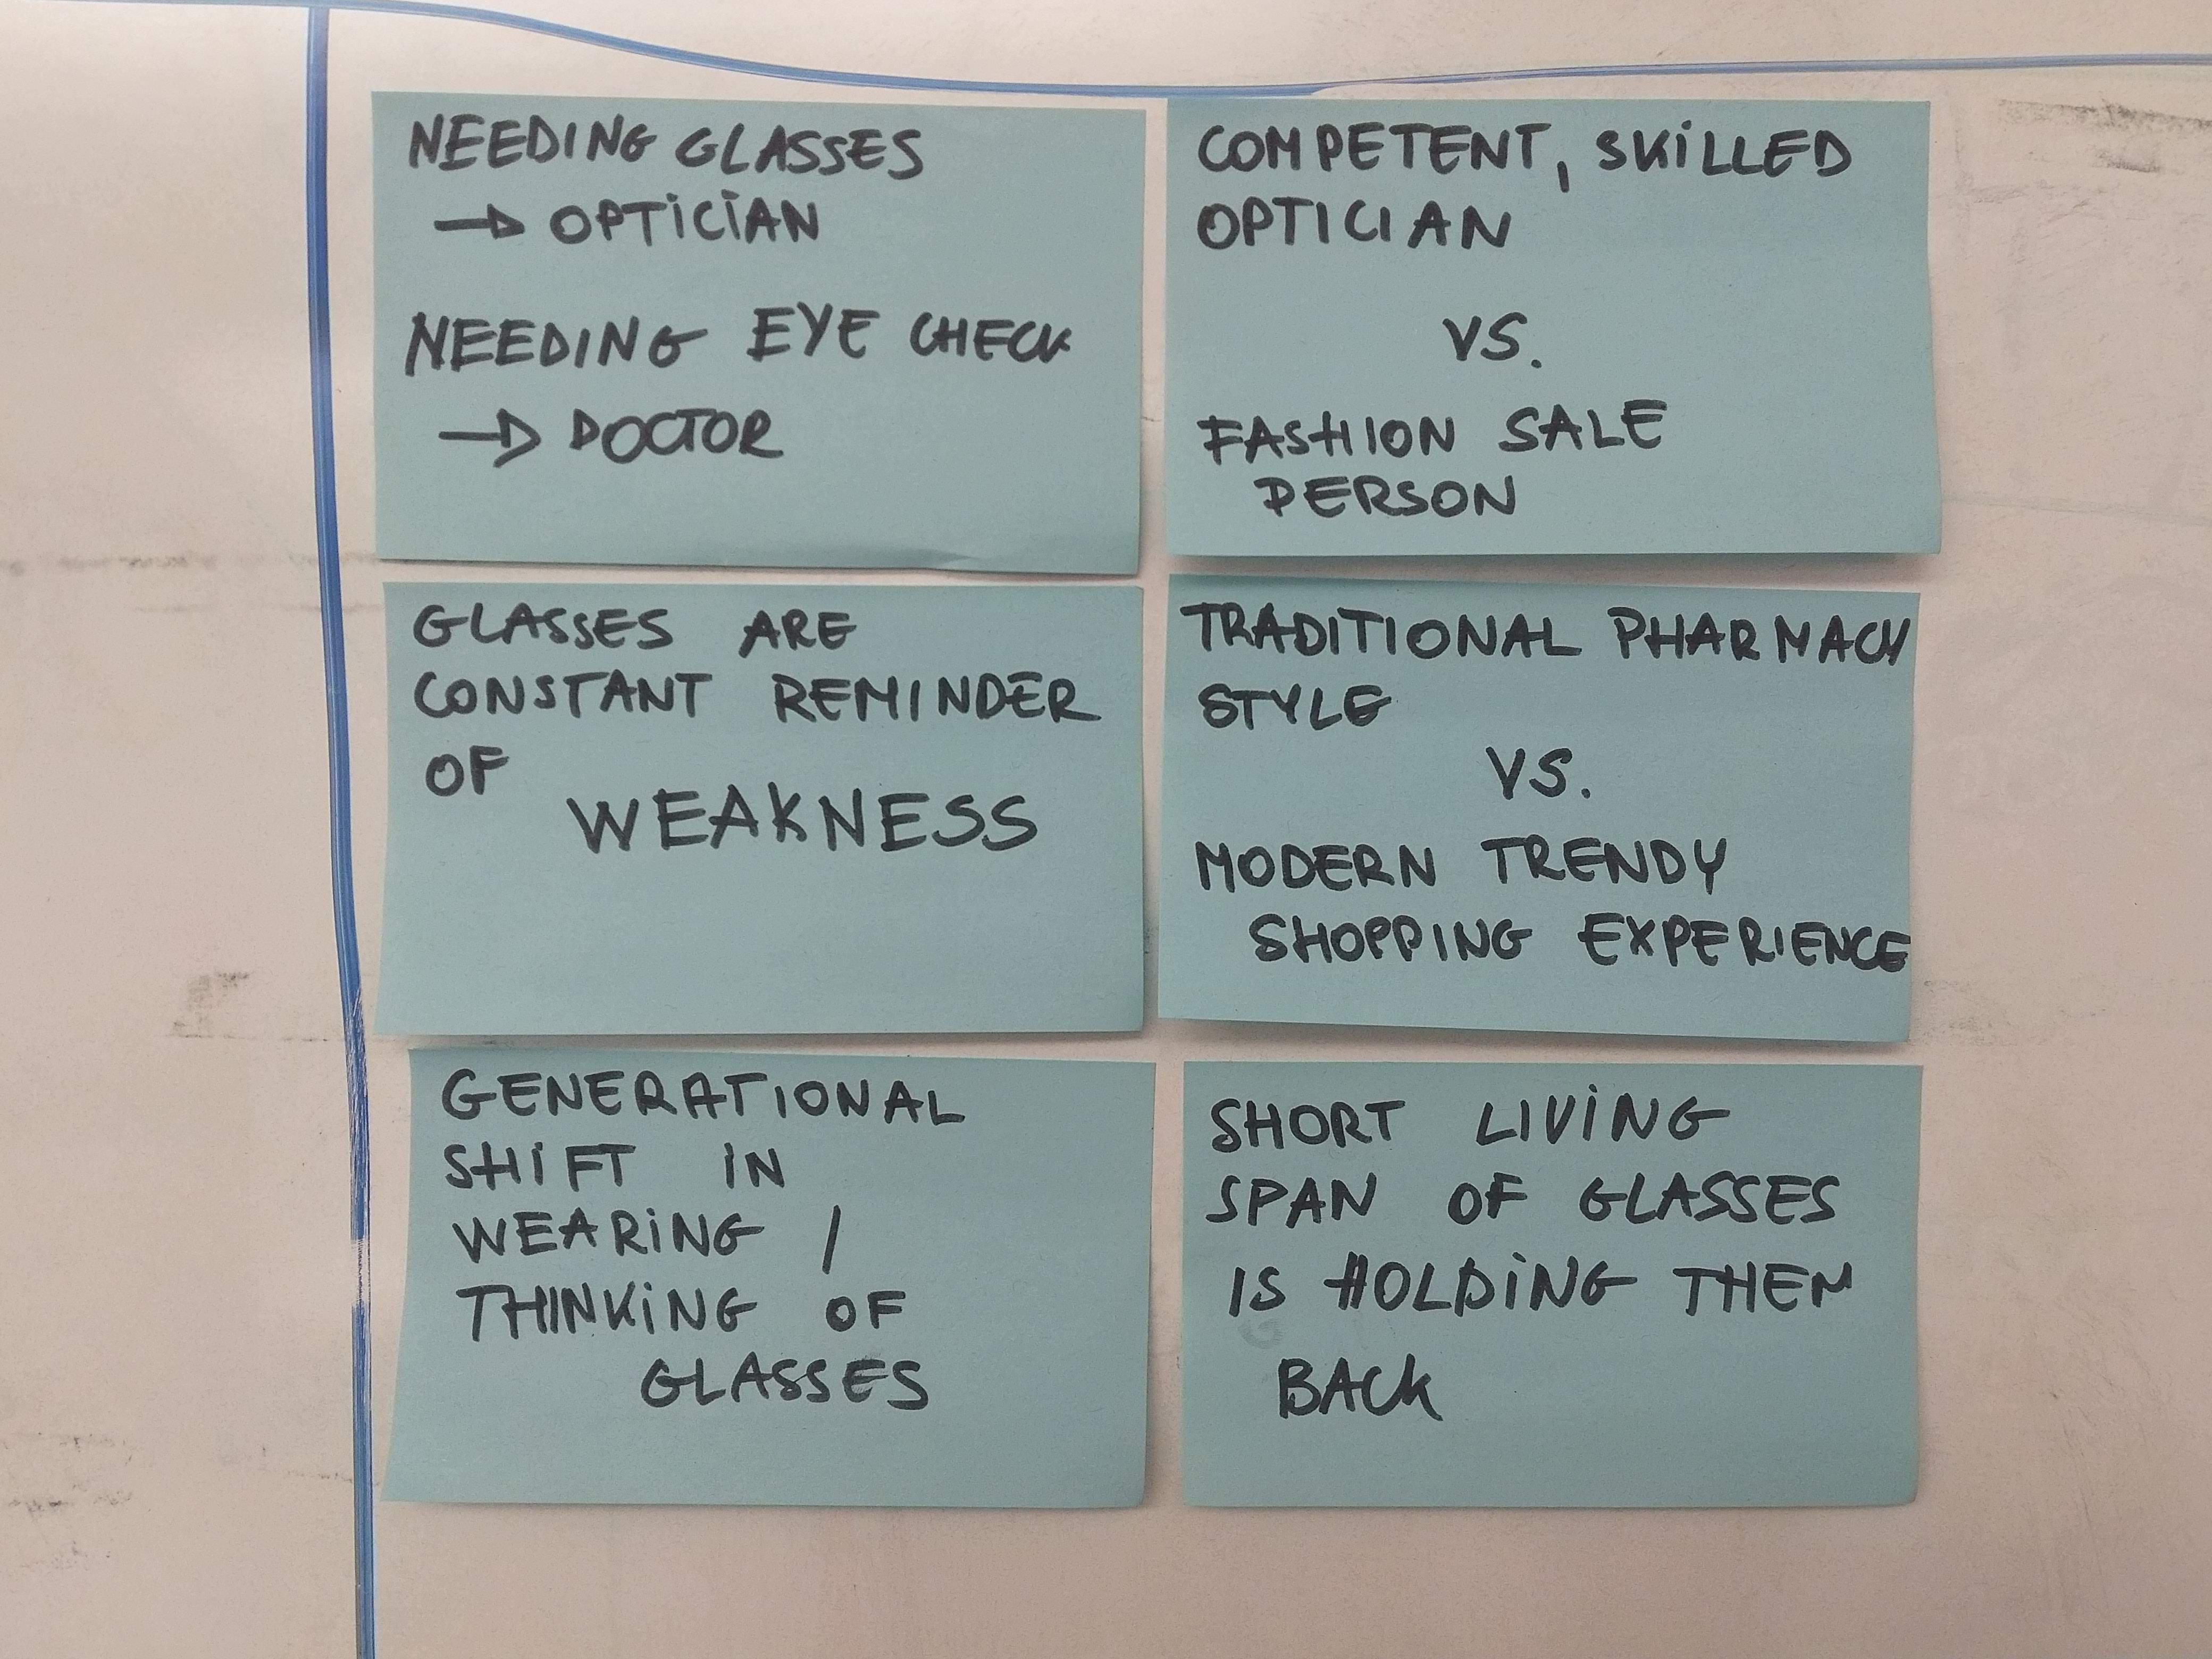 NEEDING GLASSES
→ OPTICIAN
NEEDING EYE CHECK
→ DOCTOR
COMPETENT, SKILLED
OPTICIAN
VS.
FASHION SALE
PERSON
GLASSES ARE
CONSTANT REMINDER
OF
WEAKNESS
TRADITIONAL PHARMACY
STYLE
VS.
MODERN TRENDY
SHOPPING EXPERIENCE
GENERATIONAL
SHIFT IN
WEARING /
THINKING OF
GLASSES
SHORT LIVING
SPAN OF GLASSES
IS HOLDING THEM
BACK